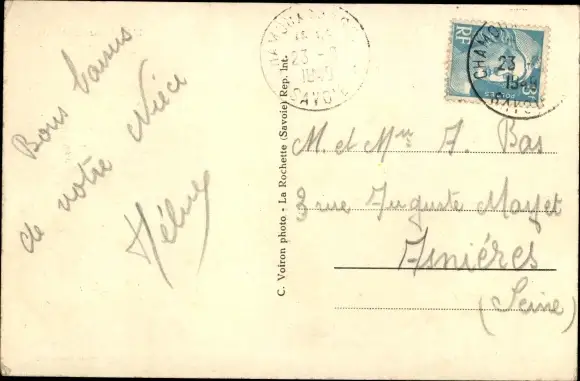 Bons baisers
de votre Nièce
Hélène
C. Voiron photo - La Rochette (Savoie) Rep. Int.
23
SAVOIE
RF
POSTES
CHAMOU
23
M. et Mme A. Bas
3 rue Auguste Mayet
Asnières
(Seine)